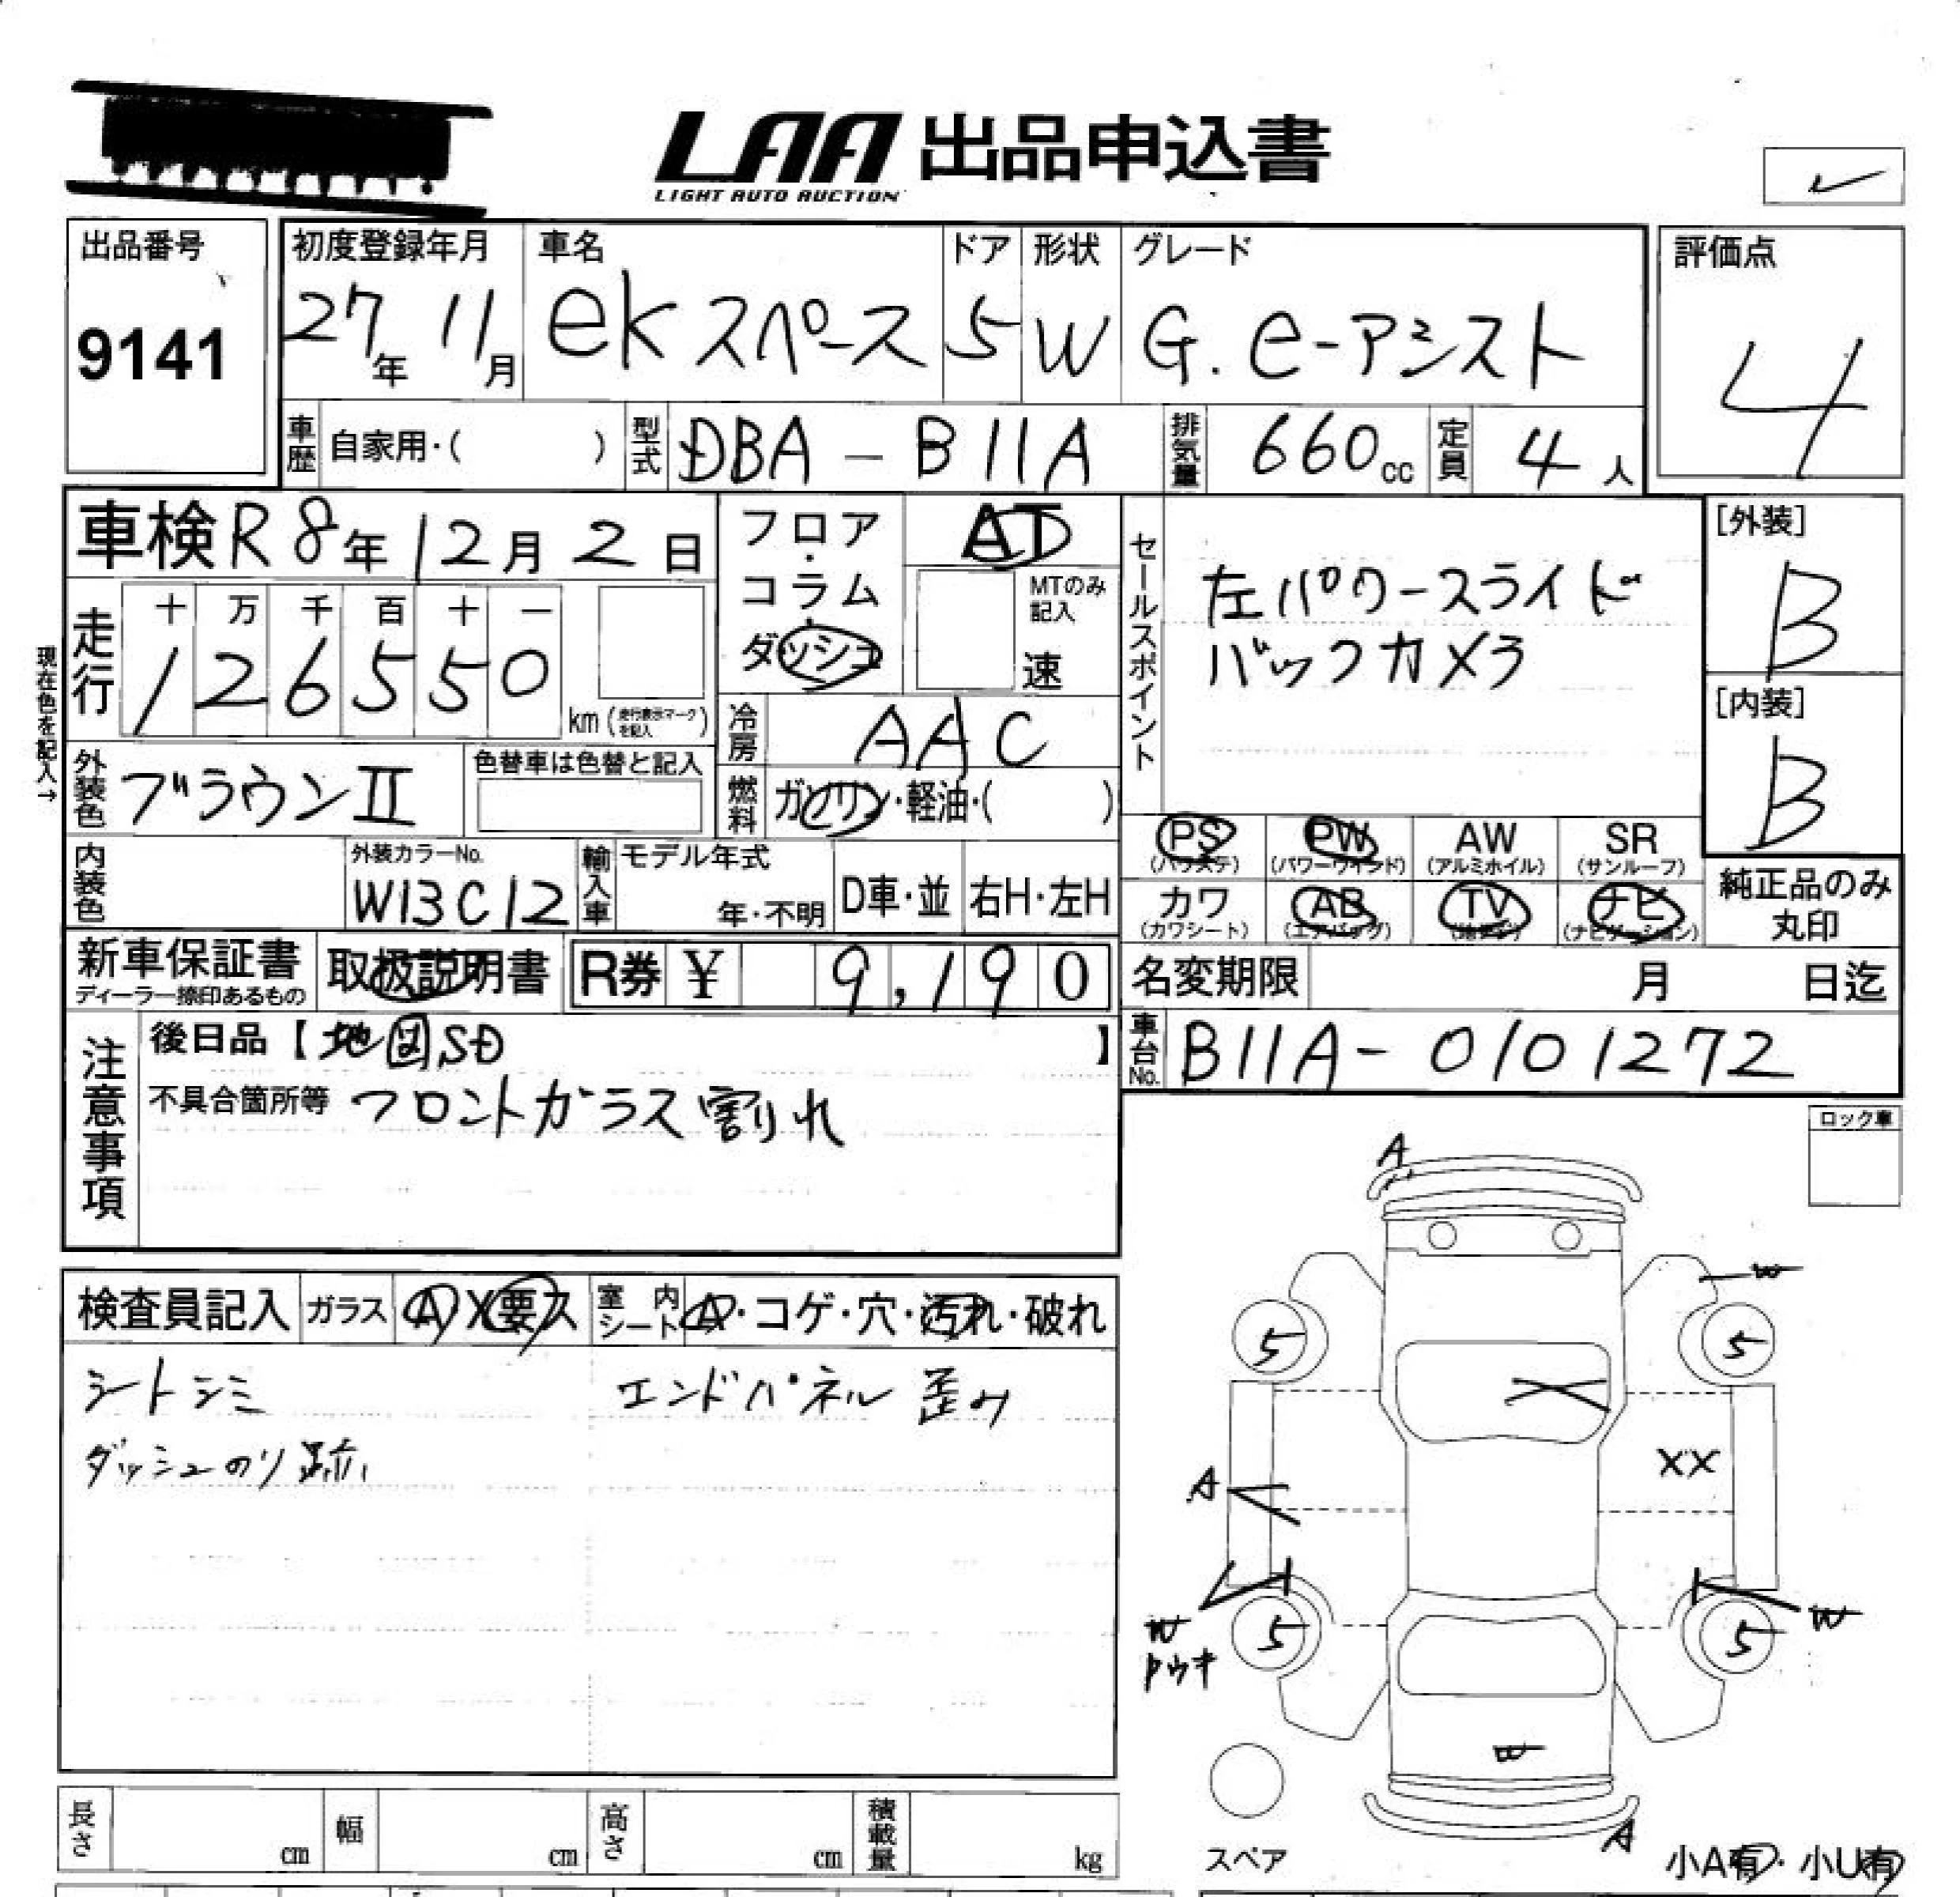 LAA 出品申込書
LIGHT AUTO AUCTION
出品番号
9141
初度登録年月
27年 11月
車名
eKスペース
ドア
5
形状
W
グレード
G. e-アシスト
評価点
4
車歴 自家用・( )
型式 DBA-B11A
排気量 660cc
定員 4人
車検 R8年12月2日
フロア・コラム
ダッシュ
AT
MTのみ記入
速
セールスポイント
左パワースライド
バックカメラ
[外装]
B
[内装]
B
現在色を記入→
走行
十 万 千 百 十 一
1 2 6 5 5 0
km (走行表示マークを記入)
冷房 AAC
燃料 ガソリン・軽油・( )
外装色 ブラウンII
色替車は色替と記入
内装色
外装カラーNo.
W13C12
輸入車
モデル年式
年・不明
D車・並
右H・左H
PS (パワステ)
PW (パワーウインド)
AW (アルミホイル)
SR (サンルーフ)
カワ (カワシート)
AB (エアバッグ)
TV
ナビ (ナビゲーション)
純正品のみ
丸印
新車保証書
ディーラー捺印あるもの
取扱説明書
R券 ¥ 9,190
名変期限 月 日迄
車台No. B11A-0101272
注意事項
後日品【地図SD】
不具合箇所等 フロントガラス割れ
ロック車
検査員記入
ガラス A X 要ス
室内シート A・コゲ・穴・汚れ・破れ
シートシミ
エンドパネル歪み
ダッシュのり跡
A
W
5
5
X
A
XX
W
トツキ
5
5
W
W
A
スペア
小A有・小U有
長さ cm
幅 cm
高さ cm
積載量 kg